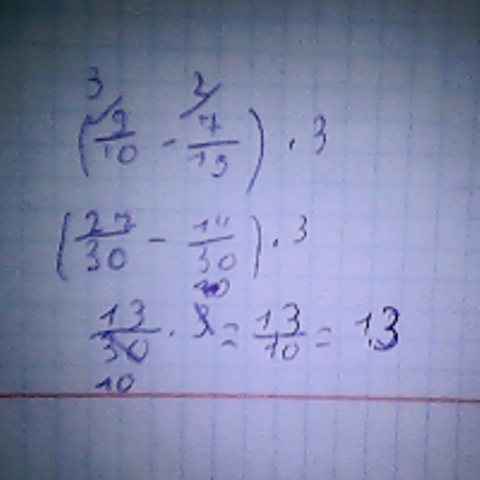 3 2
(9/10 - 7/15) · 3
(27/30 - 14/30) · 3
13/30 · 3 = 13/10 = 1,3
10